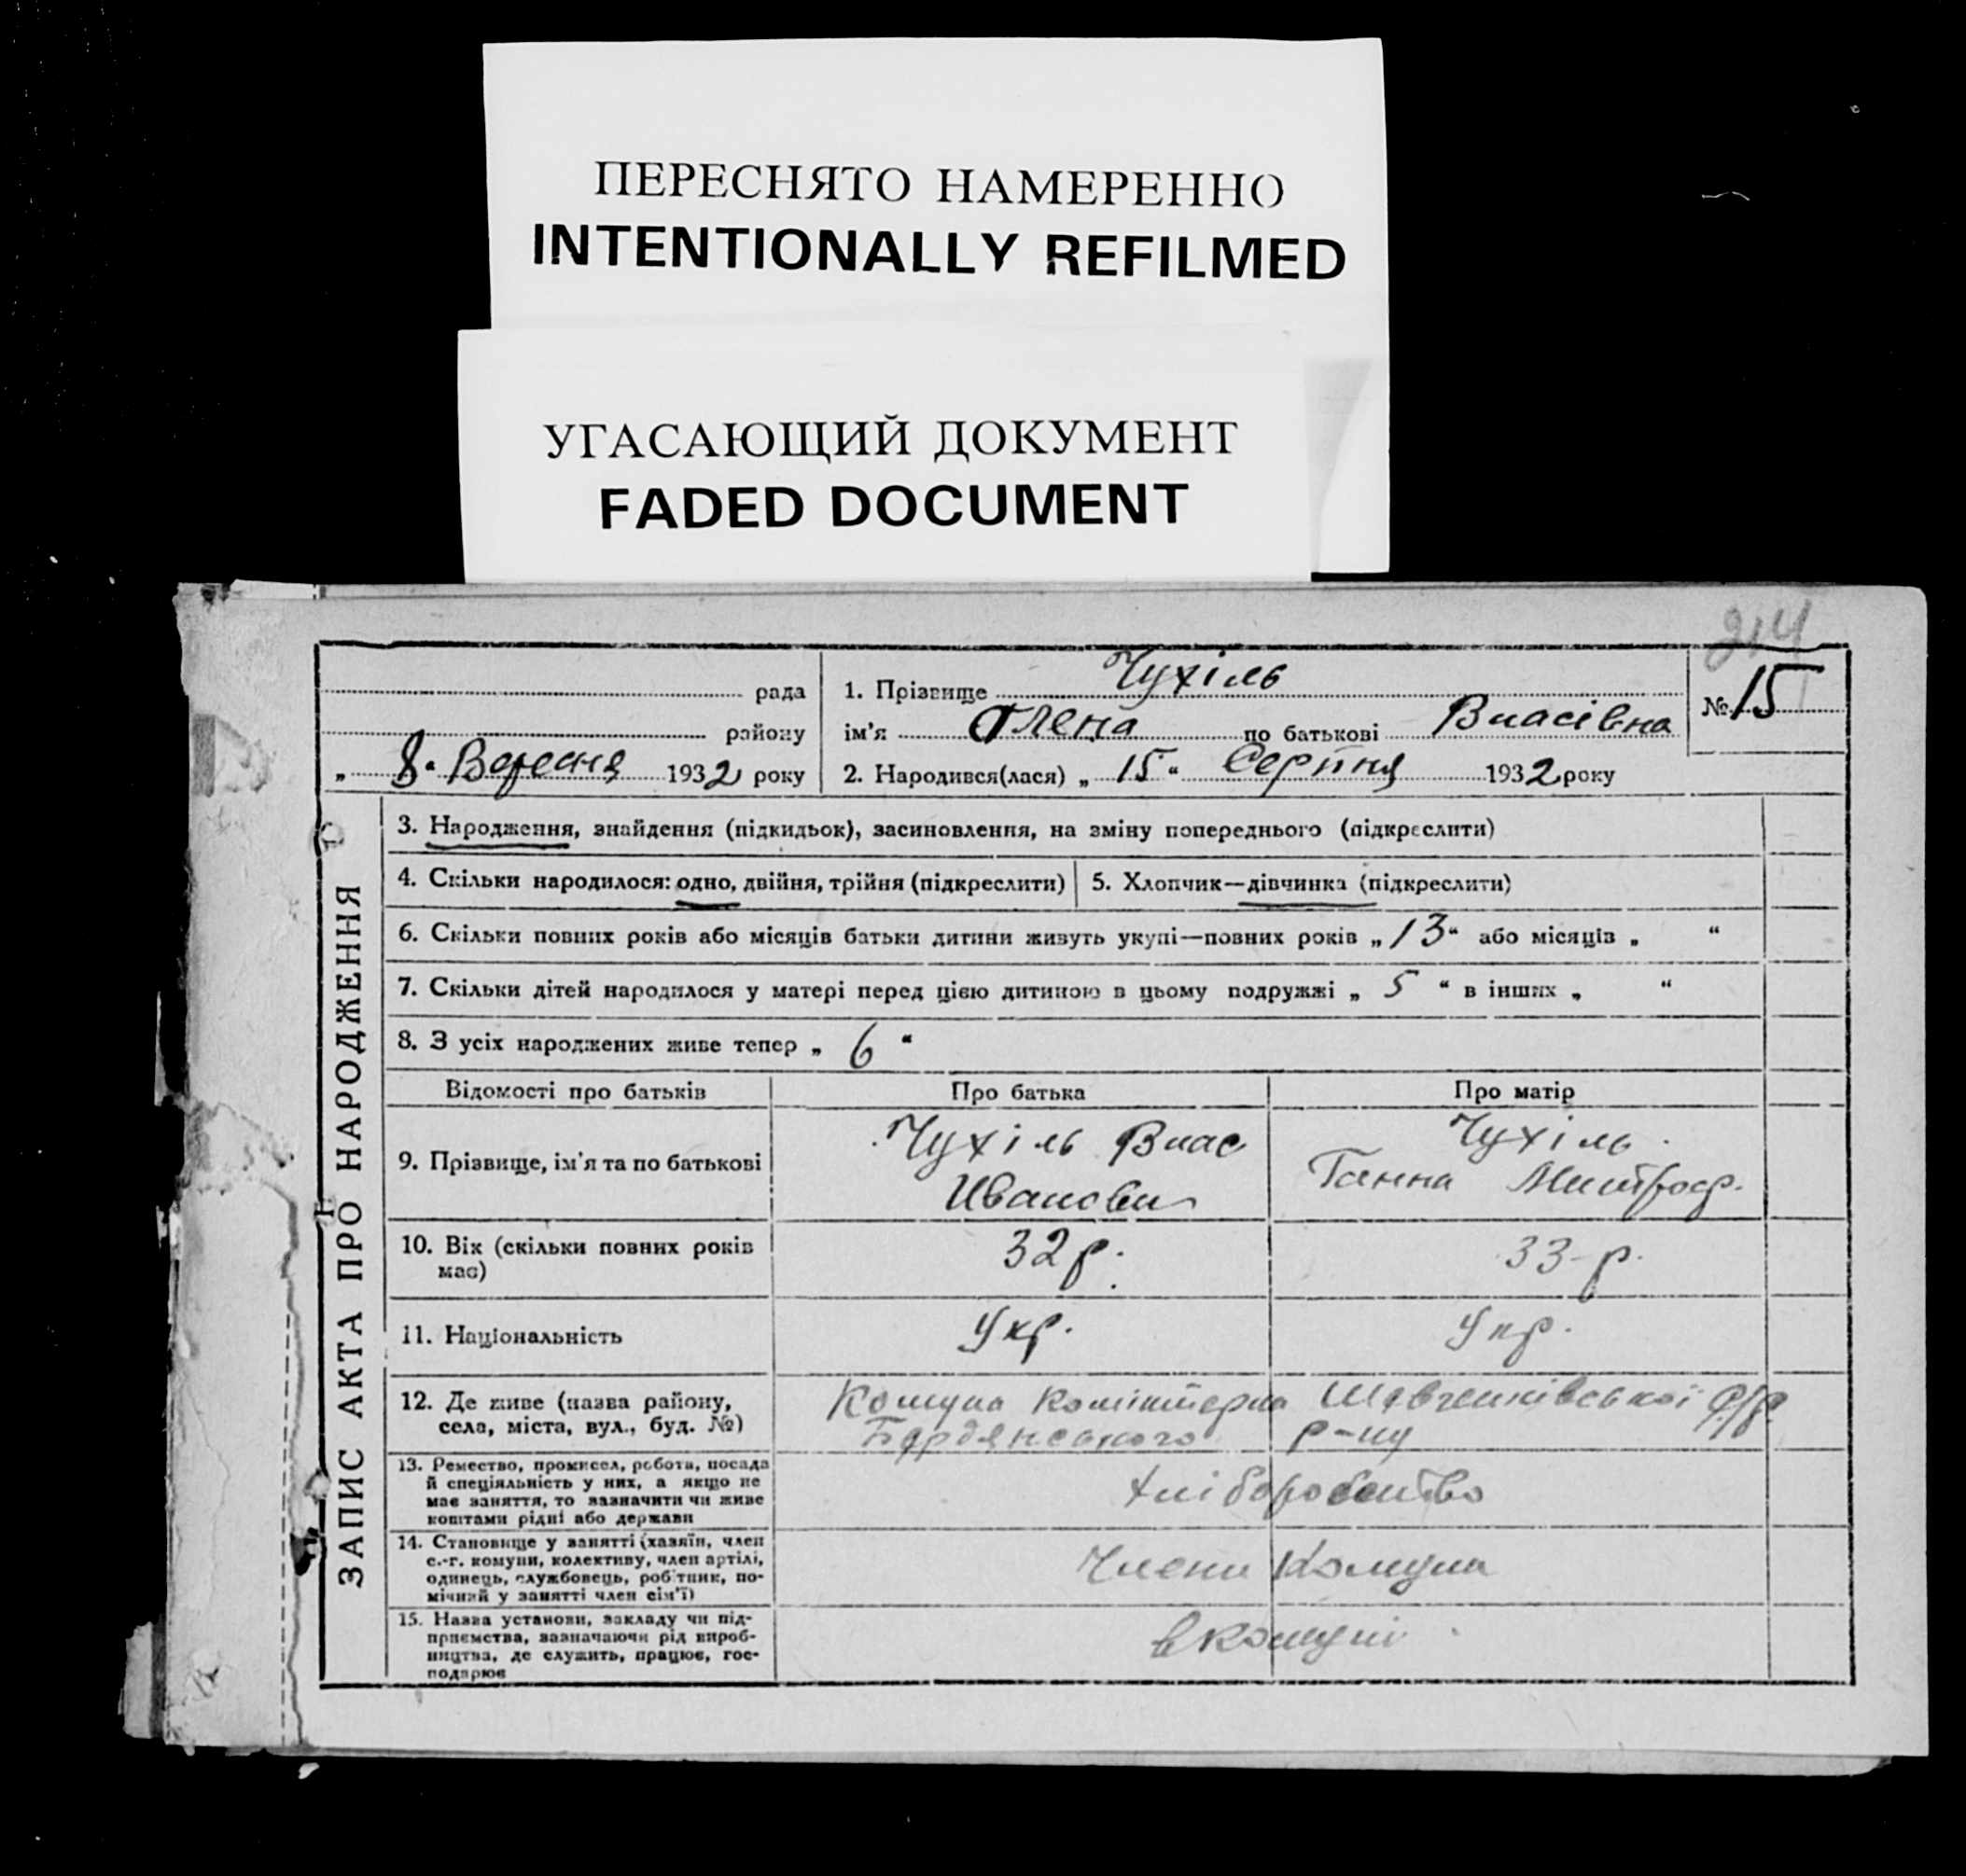 ПЕРЕСНЯТО НАМЕРЕННО
INTENTIONALLY REFILMED
УГАСАЮЩИЙ ДОКУМЕНТ
FADED DOCUMENT
214
рада
району
„ 8 “ Вересня 1932 року
1. Прізвище Чухіль
ім'я Олена по батькові Власівна
2. Народився(лася) „ 15 “ Серпня 1932 року
№ 15
ЗАПИС АКТА ПРО НАРОДЖЕННЯ
3. Народження, знайдення (підкидьок), засиновлення, на зміну попереднього (підкреслити)
4. Скільки народилося: одно, двійня, трійня (підкреслити) 5. Хлопчик—дівчинка (підкреслити)
6. Скільки повних років або місяців батьки дитини живуть укупі—повних років „ 13 “ або місяців „ “
7. Скільки дітей народилося у матері перед цією дитиною в цьому подружжі „ 5 “ в інших „ “
8. З усіх народжених живе тепер „ 6 “
Відомості про батьків Про батька Про матір
9. Прізвище, ім'я та по батькові
Чухіль Влас
Иванович
Чухіль
Ганна Митроф.
10. Вік (скільки повних років
має)
32 р.
33-р.
11. Національність Укр. Укр.
12. Де живе (назва району,
села, міста, вул., буд. №)
Комуна Комінтерна Шевченківської с/р
Бердянського р-ну
13. Ремество, промисел, робота, посада
й спеціяльність у них, а якщо не
має заняття, то зазначити чи живе
коштами рідні або держави
хліборобство
14. Становище у занятті (хазяїн, член
с.-г. комуни, колективу, член артілі,
одинець, службовець, робітник, по-
мічний у занятті член сім'ї)
Члени Комуни
15. Назва установи, закладу чи під-
приємства, зазначаючи рід вироб-
ництва, де служить, працює, гос-
подарює
в комуні